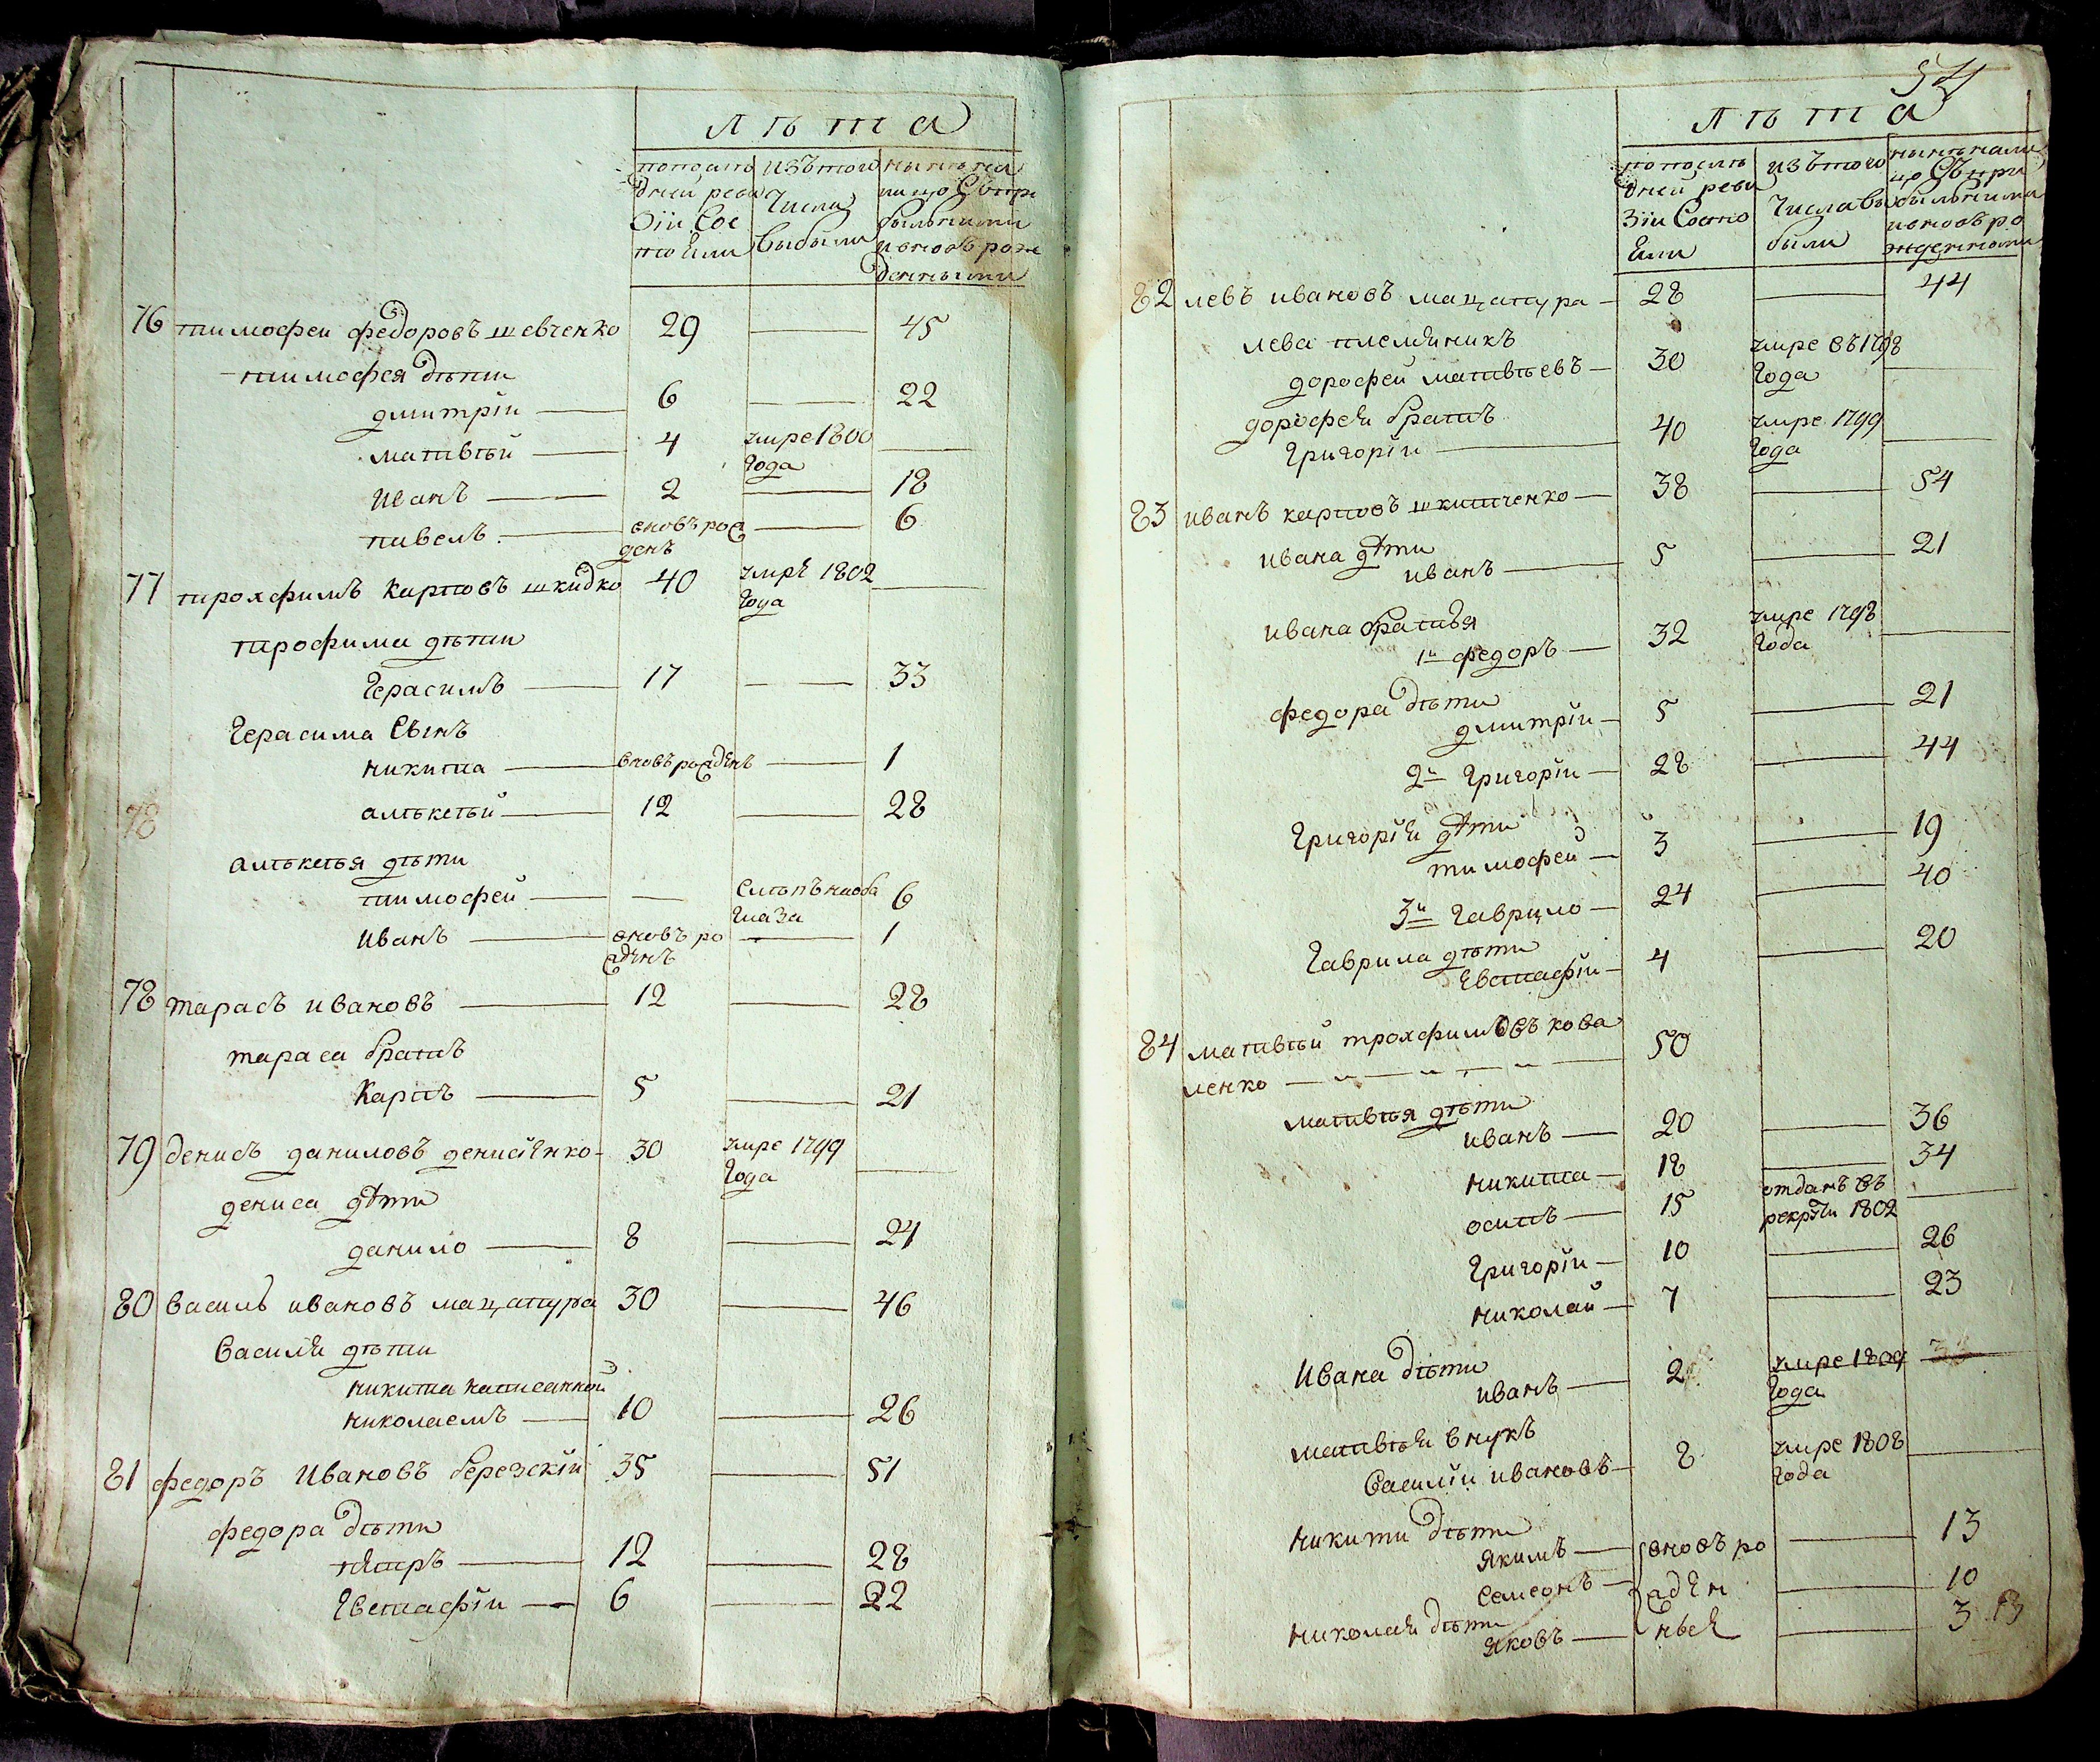 лѣта
попослѣ
дней реви
зіи сос
тоѣли
изътого
числа
выбыли
нынѣна
лицо съпри
былыми
ивновърож
денными
76 тимофеи федоровъ шевченко 29 — 45
тимофея дѣти
дмитріи — 6 — 22
матвѣй — 4 умре 1800
года —
иванъ — 2 — 18
павелъ — вновърож
денъ — 6
77 трохфимъ карповъ шкидко 40 умрѣ 1802
года —
трофима дѣти
герасимъ — 17 — 33
герасима сынъ
никита — вновърожденъ — 1
78 алѣксѣй — 12 — 28
алѣксѣя дѣти
тимофей — — слѣпъ наоба
глаза 6
иванъ — вновъ ро
жденъ — 1
78 тарасъ ивановъ — 12 — 28
тараса братъ
карпъ — 5 — 21
79 денисъ даниловъ денисѣнко - 30 умре 1799
года —
дениса дѣти
данило — 8 — 24
80 василь ивановъ мацапура 30 — 46
василѣя дѣти
никита написанной
николаемъ — 10 — 26
81 федоръ ивановъ березскій 35 — 51
федора дѣти
пѣтръ — 12 — 28
евстафіи — 6 — 22
54
лѣта
попослѣ
дней реви
зіи состо
ѣли
изътого
числавы
были
нынѣнали
цо съпри
былыми
ивновъро
жденными
82 левъ ивановъ мацапура — 28 — 44
лева племяникъ
дорофеи матвѣевъ — 30 умре въ1798
года —
дорофея братъ
григоріи — 40 умре 1799
года —
83 иванъ карповъ шкитченко — 38 — 54
ивана дѣти
иванъ — 5 — 21
ивана братья
1й федоръ — 32 умре 1798
года —
федора дѣти
дмитріи — 5 — 21
2й григоріи — 28 — 44
григорія дѣти
тимофей — 3 — 19
3й гаврило — 24 — 40
гаврила дѣти
евстафіи — 4 — 20
84 матвѣй трохфимовъ кова
ленко — 50
матвѣя дѣти
иванъ — 20 — 36
никита — 18 — 34
осипъ — 15 отданъ въ
рекруты 1802 —
григоріи — 10 — 26
николаи — 7 — 23
ивана дѣти
иванъ — 2 умре 1809
года —
матвѣя внукъ
василіи ивановъ — 8 умре 1808
года —
никити дѣти
якимъ — вновъ ро — 13
самсонъ — жден — 10
николая дѣти
яковъ — ныя — 3 13